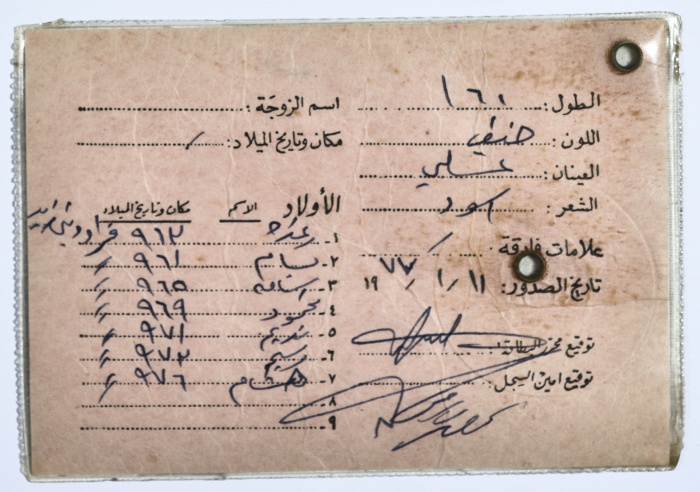 الطول: ١٦١
اللون: حنطي
العينان: عسلي
الشعر: اسود
علامات فارقة: /
تاريخ الصدور: ١١/ ١/ ١٩٧٧
توقيع محرر البطاقة:
توقيع امين السجل:
اسم الزوجة:
مكان وتاريخ الميلاد: /
الأولاد الاسم مكان وتاريخ الميلاد
١- ٩٦٢
٢- بسام ٩٦١ //
٣- اسامه ٩٦٥ //
٤- محمود ٩٦٩ //
٥- نديم ٩٧١ //
٦- وسيم ٩٧٢ //
٧- هشام ٩٧٦ //
٨-
٩-